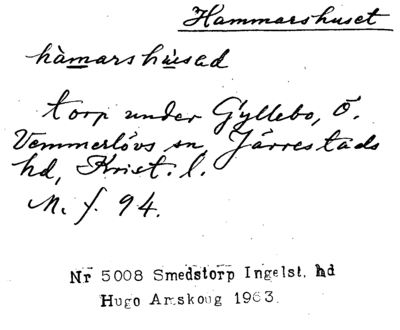 Hammarshuset
hàmarshùsad
torp under Gyllebo, Ö.
Vemmerlövs sn, Järrestads
hd, Krist. l.
M. f. 94.
Nr 5008 Smedstorp Ingelst. hd
Hugo Areskoug 1963.